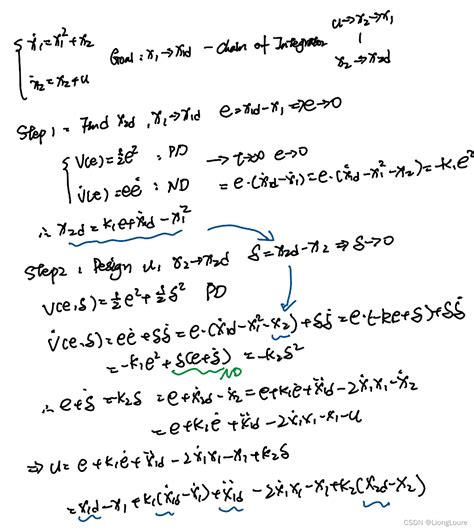 ẋ₁ = x₁² + x₂
ẋ₂ = x₂ + u
Goal: x₁ → x₁d - Chain of Integrator
u → x₂ → x₁
x₂ → x₂d
Step 1: Find x₂d, x₁ → x₁d e = x₁d - x₁ ⇒ e → 0
V(e) = ½e² : PD → t→∞ e → 0
V̇(e) = eė : ND = e·(ẋ₁d - ẋ₁) = e·(ẋ₁d - x₁² - x₂) = -k₁e²
∴ x₂d = k₁e + ẋ₁d - x₁²
Step 2: Design u, x₂ → x₂d δ = x₂d - x₂ ⇒ δ → 0
V(e,δ) = ½e² + ½δ² PD
V̇(e,δ) = eė + δδ̇ = e·(ẋ₁d - x₁² - x₂) + δδ̇ = e·(-ke + δ) + δδ̇
= -k₁e² + δ(e + δ̇) = -k₂δ²
ND
∴ e + δ̇ = -k₂δ = e + ẋ₂d - ẋ₂ = e + k₁ė + ẍ₁d - 2ẋ₁x₁ - ẋ₂
= e + k₁ė + ẍ₁d - 2ẋ₁x₁ - x₁ - u
⇒ u = e + k₁ė + ẍ₁d - 2ẋ₁x₁ - x₁ + k₂δ
= x₁d - x₁ + k₁(ẋ₁d - ẋ₁) + ẍ₁d - 2ẋ₁x₁ - x₁ + k₂(x₂d - x₂)
CSDN @LiongLoure